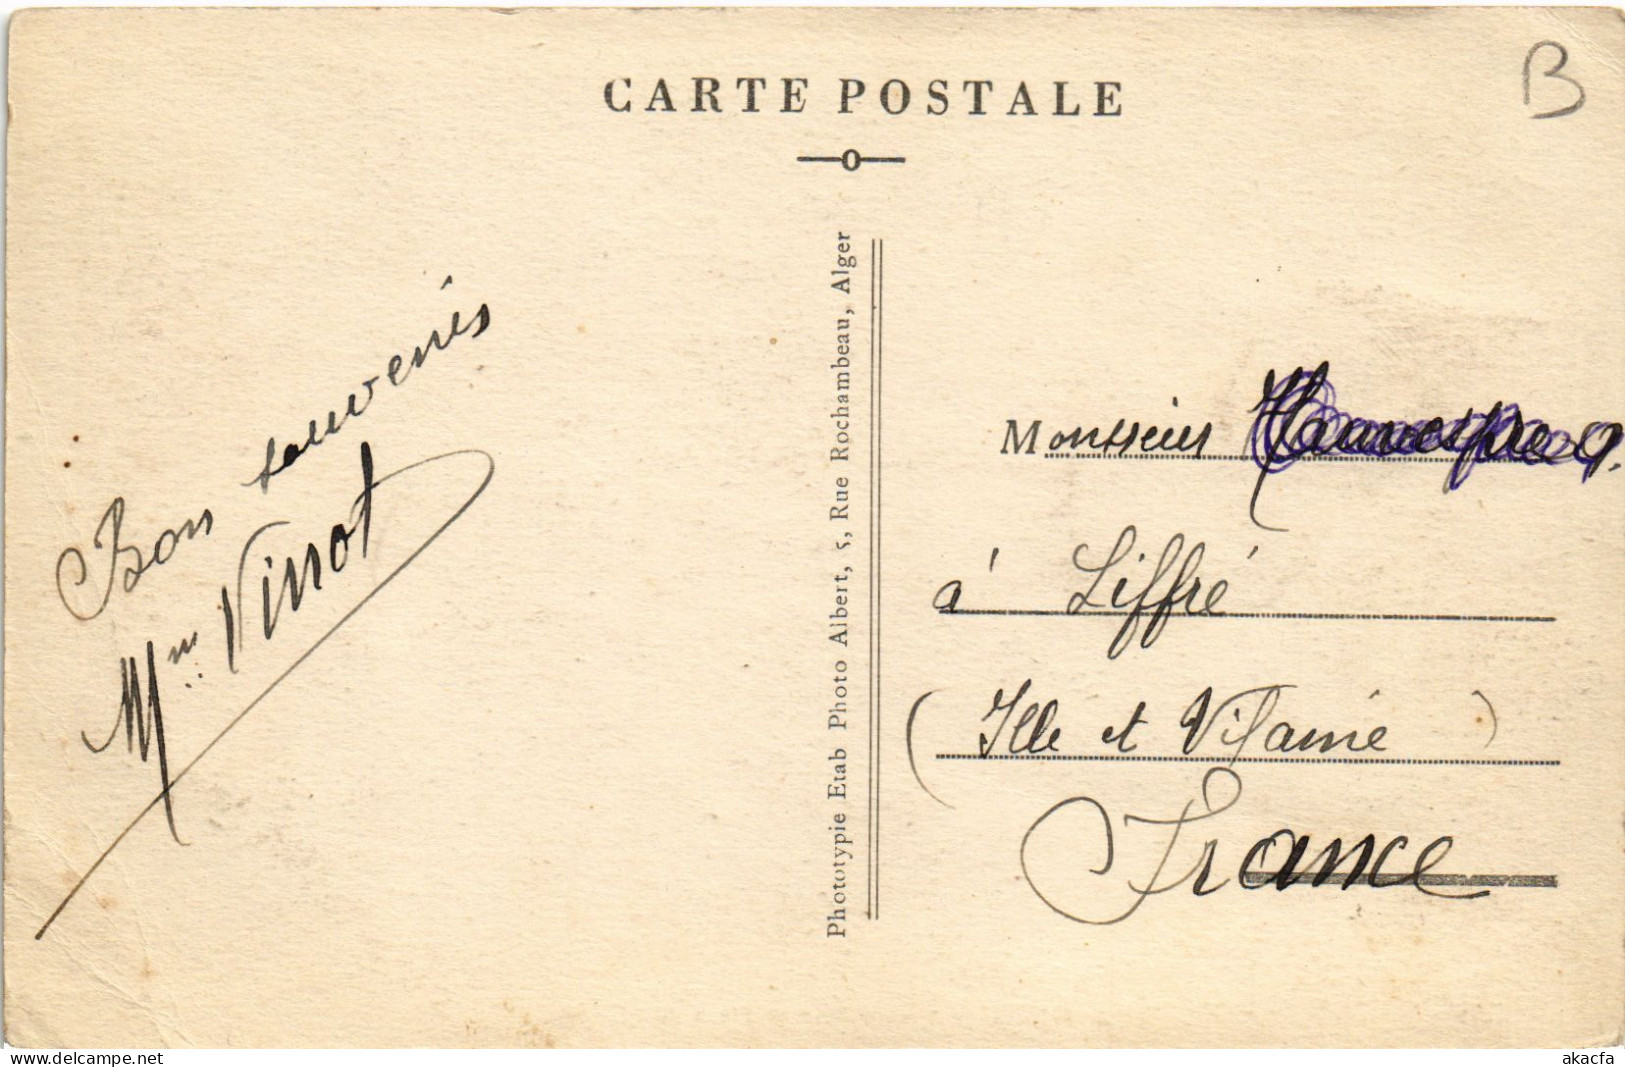 CARTE POSTALE
B
Bon souvenis
Mme Vinot
Phototypie Etab Photo Albert, 5, Rue Rochambeau, Alger
Monsieur
à Liffré
(Ille et Vilaine)
France
www.delcampe.net
akacfa